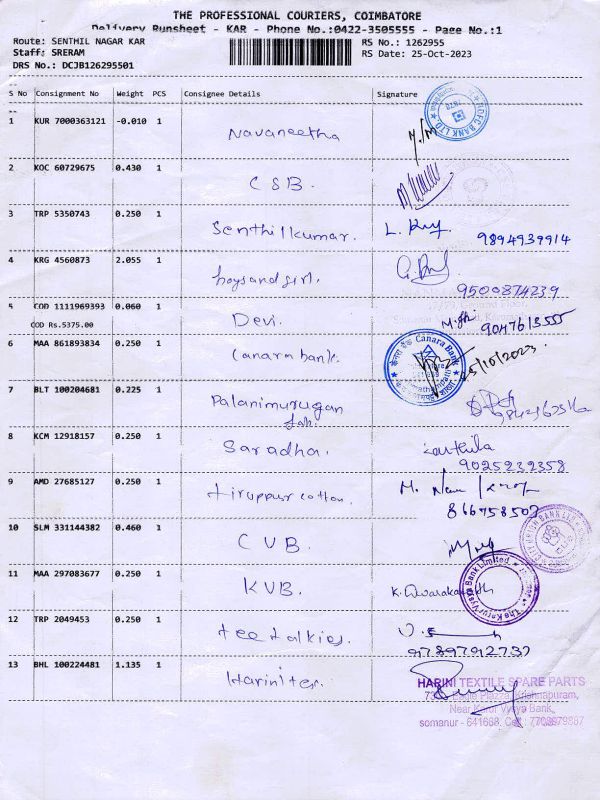 THE PROFESSIONAL COURIERS, COIMBATORE
Delivery Runsheet - KAR - Phone No.:0422-3505555 - Page No.:1
Route: SENTHIL NAGAR KAR
RS No.: 1262955
Staff: SRERAM
RS Date: 25-Oct-2023
DRS No.: DCJB126295501
S No Consignment No Weight PCS Consignee Details Signature
1 KUR 7000363121 -0.010 1 Navaneetha
HDFC BANK LTD.
2 KOC 60729675 0.430 1 CSB.
3 TRP 5350743 0.250 1 Senthilkumar. 9894939914
4 KRG 4560873 2.055 1 boysandgirl. 9500874239
5 COD 1111969393 0.060 1 Devi.
COD Rs.5375.00
6 MAA 861893834 0.250 1 Canara bank. Canara Bank 25/10/2023
7 BLT 100204681 0.225 1 Palanimurugan
8 KCM 12918157 0.250 1 Saradha. 9025232358
9 AMD 27685127 0.250 1 tiruppur cotton.
10 SLM 331144382 0.460 1 CUB.
11 MAA 297083677 0.250 1 KVB.
The Karur Vysya Bank Limited
12 TRP 2049453 0.250 1 teetalkies.
13 BHL 100224481 1.135 1 Harinitex.
HARINI TEXTILE SPARE PARTS
Krishnapuram,
Near Karur Vysya Bank,
somanur - 641668. Cell : 7708979887